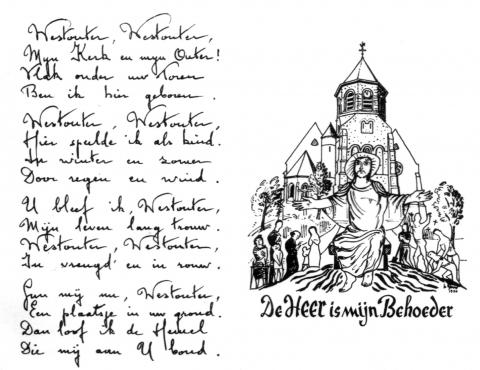 Westouter, Westouter,
Mijn Kerk en mijn Outer!
Vlak onder uw Toren
Ben ik hier geboren.
Westouter, Westouter
Hier speelde ik als kind
In winter en zomer
Door regen en wind.
U bleef ik, Westouter,
Mijn leven lang trouw.
Westouter, Westouter,
In vreugd' en in rouw.
Gun mij nu, Westouter,
Een plaatsje in uw grond.
Dan loof ik de Hemel
Die mij aan U bond.
De HEER is mijn Behoeder